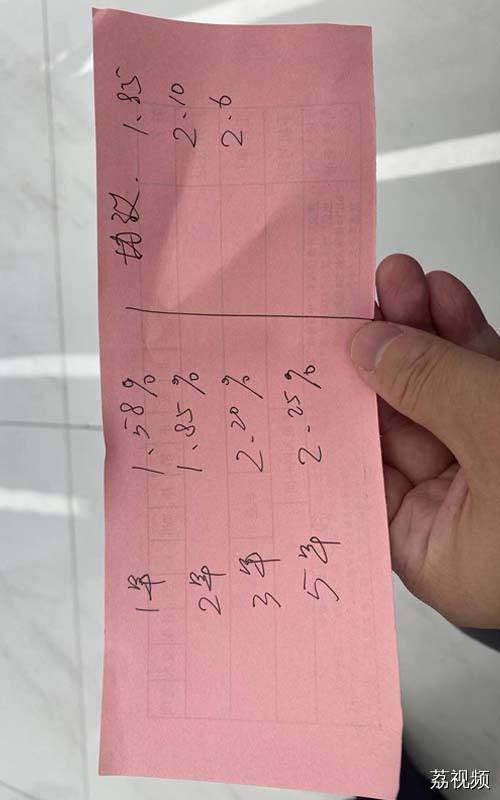 1年 1.58% 协议. 1.85
2年 1.85% 2.10
3年 2.20% 2.6
5年 2.25%
荔视频